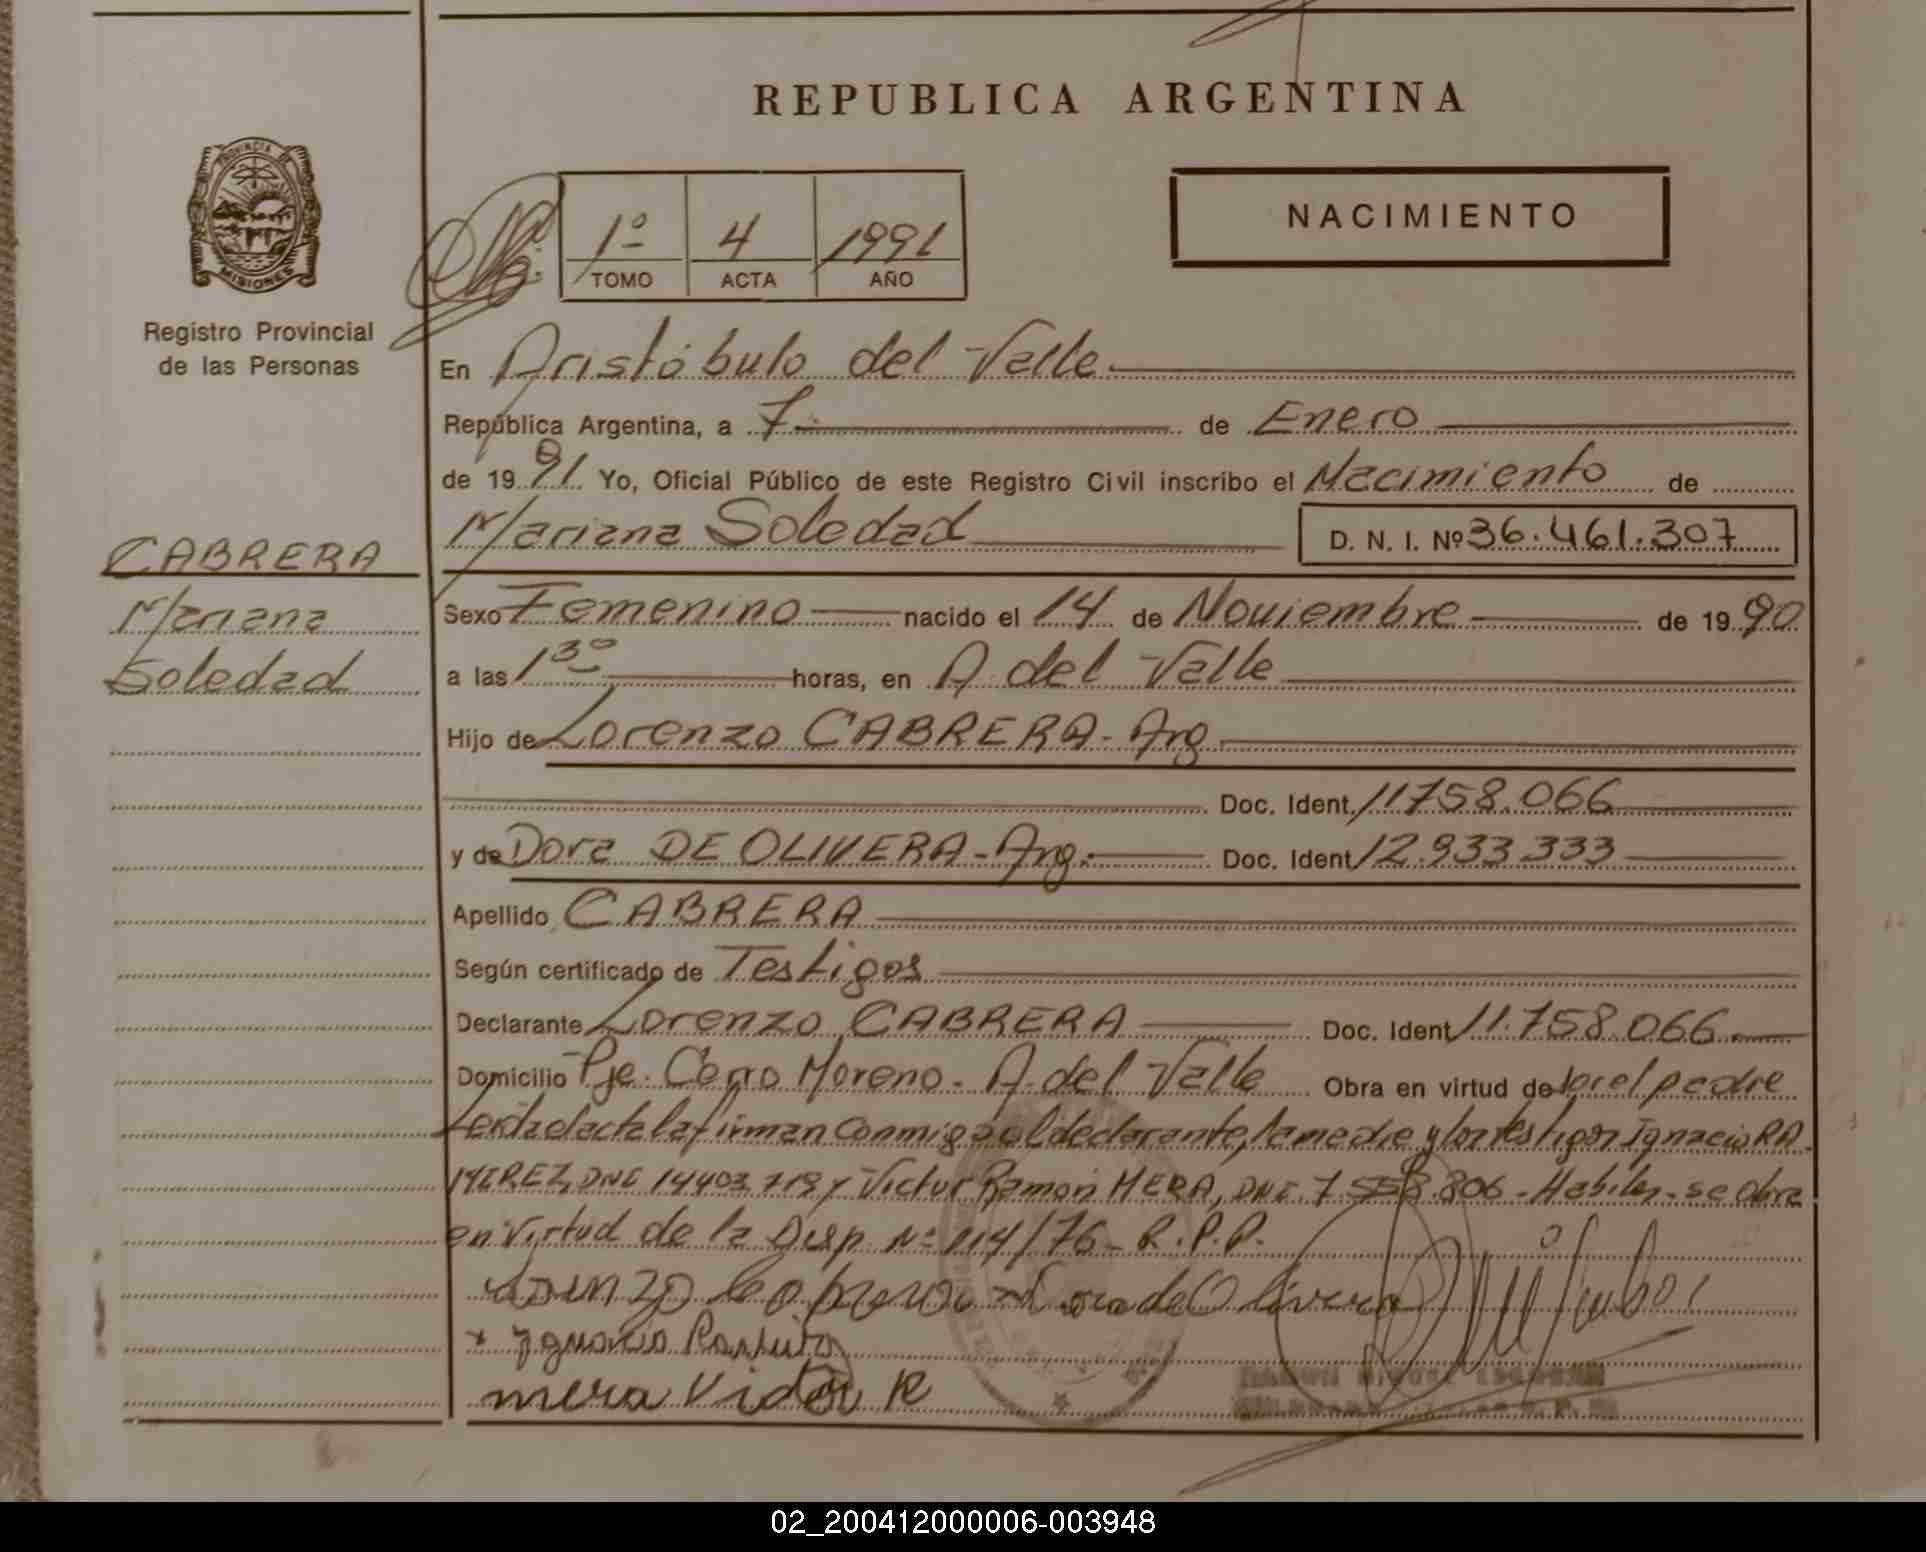 REPUBLICA ARGENTINA
PROVINCIA DE MISIONES
Registro Provincial
de las Personas
1º 4 1991
TOMO ACTA AÑO
NACIMIENTO
En Aristóbulo del Valle
República Argentina, a 7 de Enero
de 1991 Yo, Oficial Público de este Registro Civil inscribo el Nacimiento de
Mariana Soledad D. N. I. Nº 36.461.307
CABRERA
Mariana
Soledad
Sexo Femenino nacido el 14 de Noviembre de 1990
a las 1 30 horas, en A. del Valle
Hijo de Lorenzo CABRERA - Arg
Doc. Ident. 11.758.066
y de Dora DE OLIVERA - Arg. Doc. Ident 12.933.333
Apellido CABRERA
Según certificado de Testigos
Declarante Lorenzo CABRERA Doc. Ident 11.758.066
Domicilio Pje. Cerro Moreno - A. del Valle Obra en virtud de lo el padre
Leida el acta la firman conmigo el declarante, la madre y los testigos Ignacio RA-
MIREZ, DNI 14403.719 y Victor Ramon MERA, DNI 7.558.806 - Habiles - se obra
en virtud de la Disp. Nº 114/76 - R.P.P.
Lorenzo Cabrera Dora de Olivera
x Ygnacio Ramirez
mera Victor R
RAMON MIGUEL
02_200412000006-003948